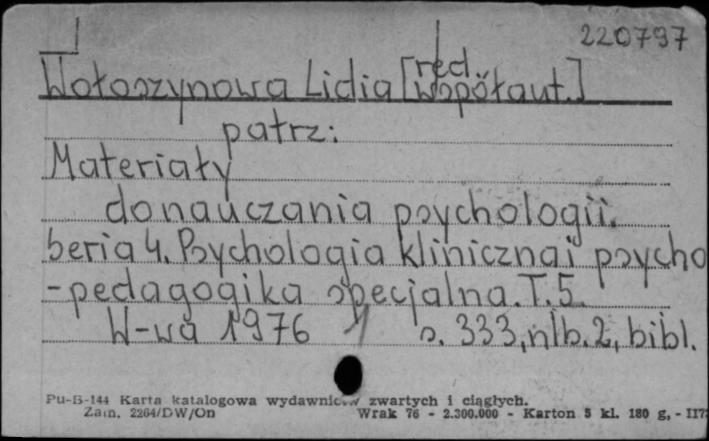 220797
Wołoszynowa Lidia [red.
współaut.]
patrz:
Materiały
do nauczania psychologii.
Seria 4. Psychologia kliniczna i psycho
-pedagogika specjalna. T. 5.
W-wa 1976 s. 333, nlb. 2, bibl.
Pu-B-144 Karta katalogowa wydawnictw zwartych i ciągłych.
Zam. 2264/DW/On Wrak 76 - 2.300.000 - Karton 5 kl. 180 g, - II73